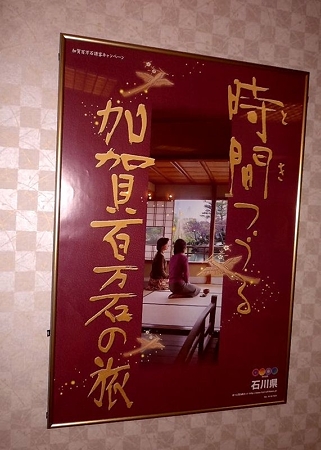 加賀百万石誘客キャンペーン
時間つづる
とき
加賀百万石の旅
石川県